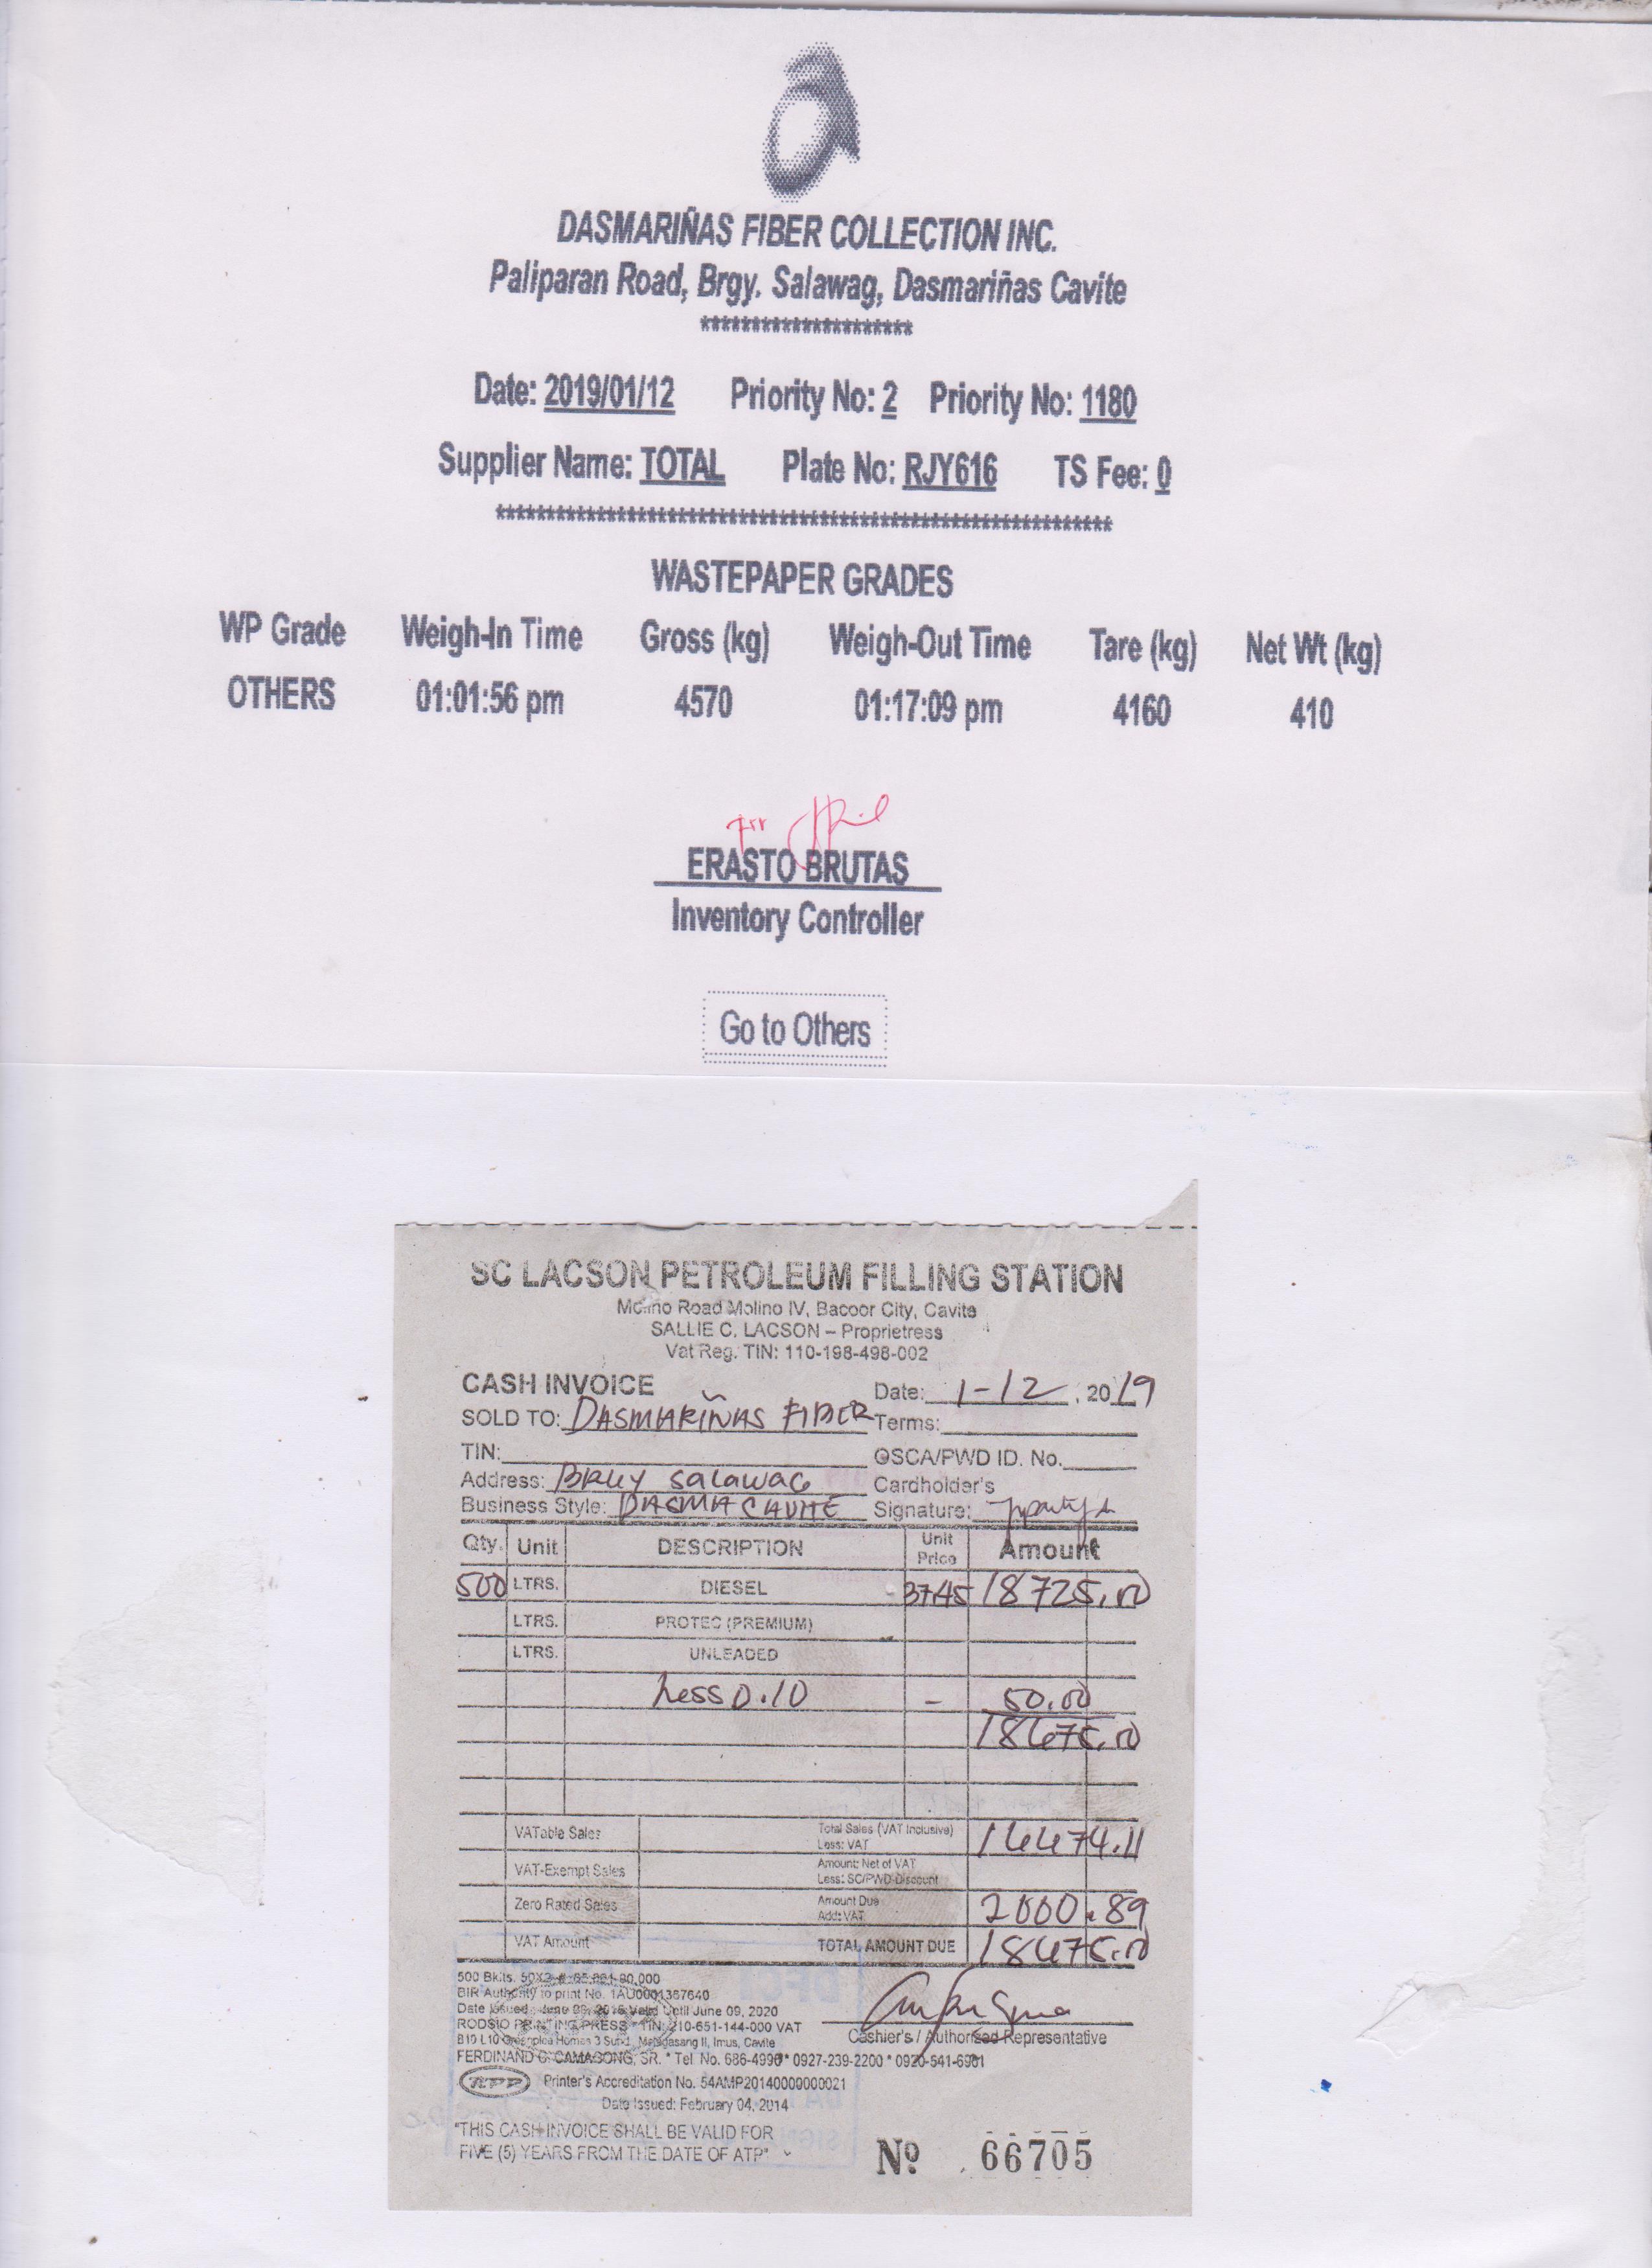 DASMARIÑAS FIBER COLLECTION INC.
Paliparan Road, Brgy. Salawag, Dasmariñas Cavite
*********************
Date: 2019/01/12 Priority No: 2 Priority No: 1180
Supplier Name: TOTAL Plate No: RJY616 TS Fee: 0
*************************************************************
WASTEPAPER GRADES
WP Grade Weigh-In Time Gross (kg) Weigh-Out Time Tare (kg) Net Wt (kg)
OTHERS 01:01:56 pm 4570 01:17:09 pm 4160 410
ERASTO BRUTAS
Inventory Controller
Go to Others
SC LACSON PETROLEUM FILLING STATION
Molino Road Molino IV, Bacoor City, Cavite
SALLIE C. LACSON – Proprietress
Vat Reg. TIN: 110-198-498-002
CASH INVOICE Date: 1-12, 2019
SOLD TO: DASMARIÑAS FIBER Terms:
TIN: OSCA/PWD ID. No.
Address: BRGY SALAWAG Cardholder's
Business Style: DASMA CAVITE Signature:
Qty. Unit DESCRIPTION Unit Price Amount
500 LTRS. DIESEL 37.45 18725.00
LTRS. PROTEC (PREMIUM)
LTRS. UNLEADED
Less 0.10 - 50.00
18675.00
VATable Sales Total Sales (VAT Inclusive)
Less: VAT 16674.11
VAT-Exempt Sales Amount: Net of VAT
Less: SC/PWD Discount
Zero Rated Sales Amount Due
Add: VAT 2000.89
VAT Amount TOTAL AMOUNT DUE 18675.00
500 Bklts. 50X2
BIR Authority to print No. 1AU0001367640
Date Issued: June Valid Until June 09, 2020
RODSIO PRINTING PRESS * TIN: 210-651-144-000 VAT
B10 L10 Greenplce Homes 3 Malagasang II, Imus, Cavite
FERDINAND C. CAMASONG, SR. * Tel No. 686-4990 * 0927-239-2200 * 0920-541-6901
Cashier's / Authorized Representative
RPP Printer's Accreditation No. 54AMP20140000000021
Date Issued: February 04, 2014
"THIS CASH INVOICE SHALL BE VALID FOR
FIVE (5) YEARS FROM THE DATE OF ATP"
Nº 66705